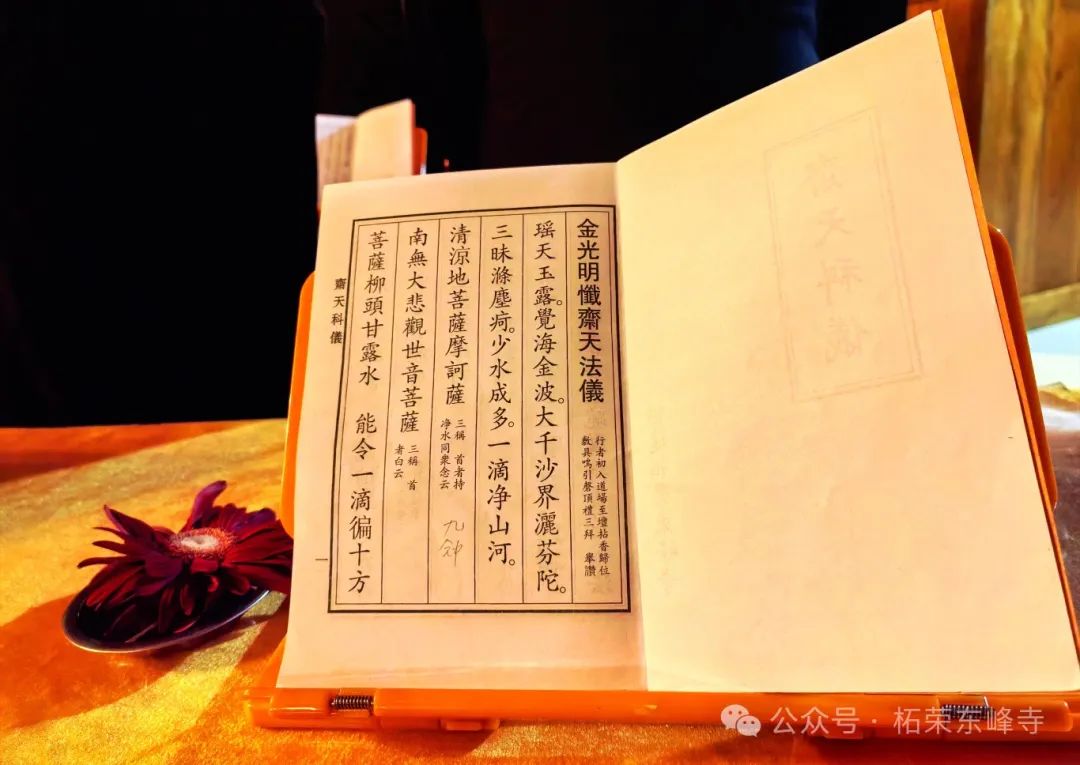 金光明懺齋天法儀
行者初入道場至壇拈香歸位
敷具鳴引磬頂禮三拜　舉讚
瑶天玉露。覺海金波。大千沙界灑芬陀。
三昧滌塵疴。少水成多。一滴净山河。
清涼地菩薩摩訶薩
三稱　首者持
净水同衆念云
九鈡
南無大悲觀世音菩薩
三稱　首
者白云
菩薩柳頭甘露水　能令一滴徧十方
齋天科儀
一
齋天科儀
公众号·柘荣东峰寺